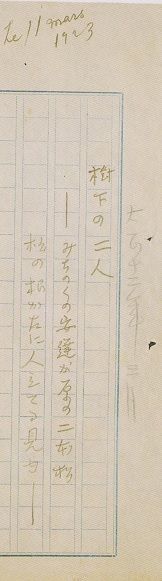 Le 11 mars
1923
大正十二年三月
樹下の二人
――みちのくの安達が原の二本松
松の根かたに人立てる見ゆ――